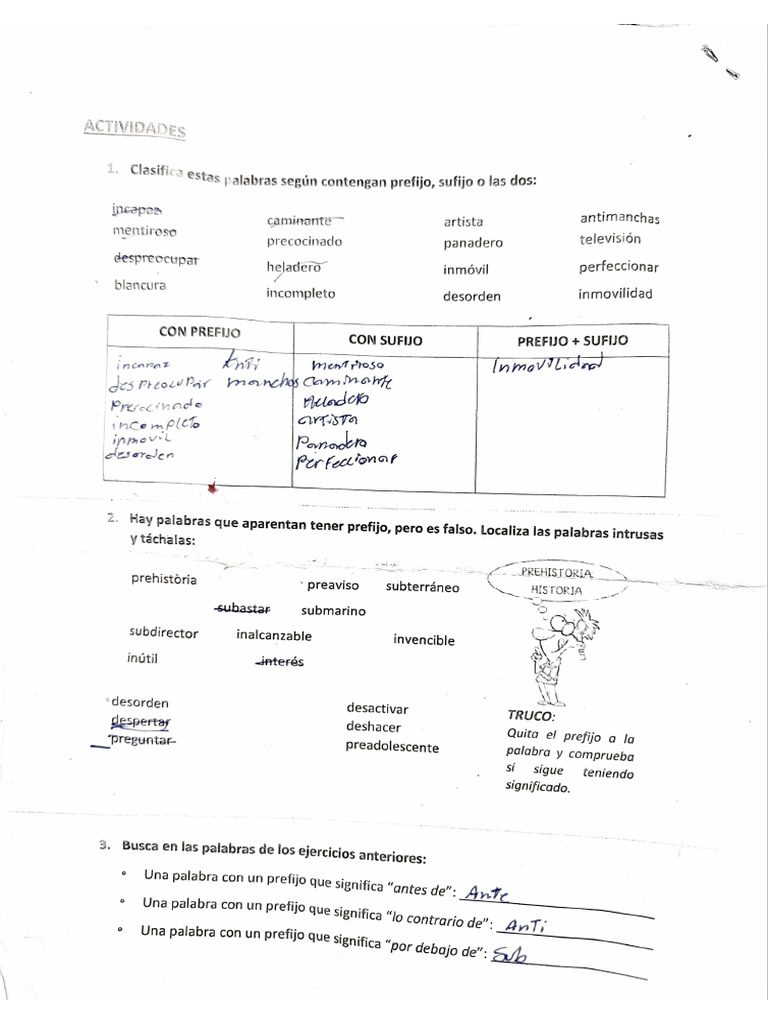 ACTIVIDADES
1. Clasifica estas palabras según contengan prefijo, sufijo o las dos:
incapaz caminante artista antimanchas
mentiroso precocinado panadero televisión
despreocupar heladero inmóvil perfeccionar
blancura incompleto desorden inmovilidad
CON PREFIJO CON SUFIJO PREFIJO + SUFIJO
incapaz Anti mentiroso Inmovilidad
despreocupar manchas caminante
Precocinado Heladero
incompleto artista
inmovil Panadero
desorden Perfeccionar
2. Hay palabras que aparentan tener prefijo, pero es falso. Localiza las palabras intrusas
y táchalas:
prehistòria preaviso subterráneo
subastar submarino
subdirector inalcanzable invencible
inútil interés
PREHISTORIA
HISTORIA
desorden desactivar
despertar deshacer
preguntar preadolescente
TRUCO:
Quita el prefijo a la
palabra y comprueba
si sigue teniendo
significado.
3. Busca en las palabras de los ejercicios anteriores:
• Una palabra con un prefijo que significa “antes de”: Ante
• Una palabra con un prefijo que significa “lo contrario de”: AnTi
• Una palabra con un prefijo que significa “por debajo de”: Sub